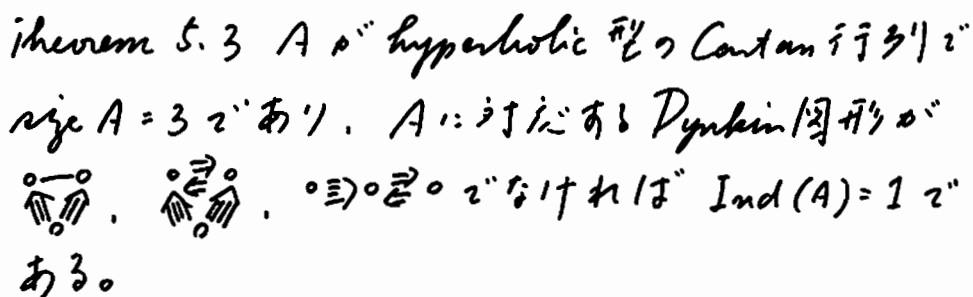 Theorem 5.3 A が hyperbolic 型の Cartan 行列で
size A = 3 であり、A に対応する Dynkin 図形が
、 、 でなければ Ind(A) = 1 で
ある。